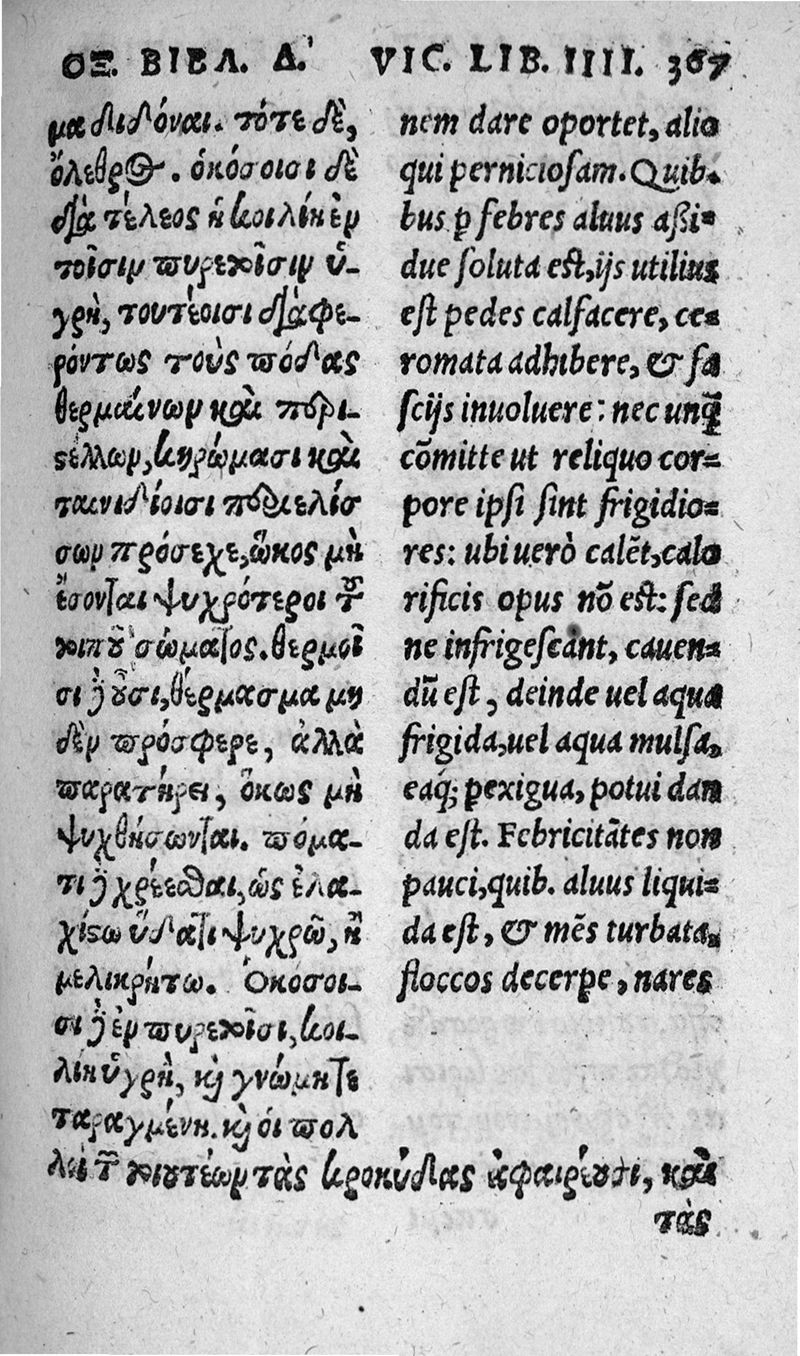 ΟΞ. ΒΙΒΛ. Δ.
μα διδόναι. τότε δὲ,
ὄλεθρος. ὁκόσοισι δὲ
διὰ τέλεος ἡ κοιλίη ἐν
τοῖσιν πυρετοῖσιν ὑ-
γρὴ, τουτέοισι διαφε-
ρόντως τοὺς πόδας
θερμαίνων καὶ περι-
στέλλων, κηρώμασι καὶ
ταινιδίοισι περιελίσ
σων πρόσεχε, ὥκος μὴ
ἔσονται ψυχρότεροι τοῦ
λοιποῦ σώματος. θερμοῖ
σι δὲ οὖσι, θέρμασμα μη
δὲν πρόσφερε, ἀλλὰ
παρατήρει, ὅκως μὴ
ψυχθήσωνται. πόμα-
τι δὲ χρέεσθαι, ὡς ἐλα-
χίστω ὕδατι ψυχρῶ, ἢ
μελικρήτω. Ὁκόσοι-
σι δὲ ἐν πυρετοῖσι, κοι-
λίη ὑγρὴ, καὶ γνώμη τε
ταραγμένη. καὶ οἱ πολ
λοὶ τῶν τοιουτέων τὰς κροκύδας ἀφαιρέουσι, καὶ
τὰς
VIC. LIB. IIII. 367
nem dare oportet, alio
qui perniciosam. Quib.
bus ꝑ febres aluus aßi-
due soluta est, ijs utilius
est pedes calfacere, ce-
romata adhibere, & fa
scijs inuoluere: nec unq̃
cōmitte ut reliquo cor-
pore ipsi sint frigidio-
res: ubi uerò calẽt, calo
rificis opus nõ est: sed
ne infrigescant, cauen-
dũ est, deinde uel aqua
frigida, uel aqua mulsa,
eaq́; ꝑexigua, potui dan
da est. Febricitãtes non
pauci, quib. aluus liqui-
da est, & mẽs turbata,
floccos decerpe, nares